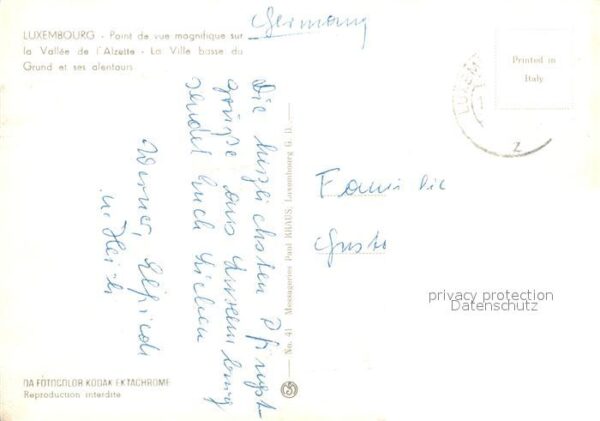 LUXEMBOURG - Point de vue magnifique sur
la Vallée de l'Alzette - La Ville basse du
Grund et ses alentours
Germany
Printed in
Italy
Die herzlichsten Pfingst-
grüße aus Luxemburg
sendet Euch Lieben
Werner, Elfriede
u. Heidi
No. 41 Messageries Paul KRAUS, Luxembourg G. D.
Familie
privacy protection
Datenschutz
DA FOTOCOLOR KODAK EKTACHROME
Reproduction interdite
2